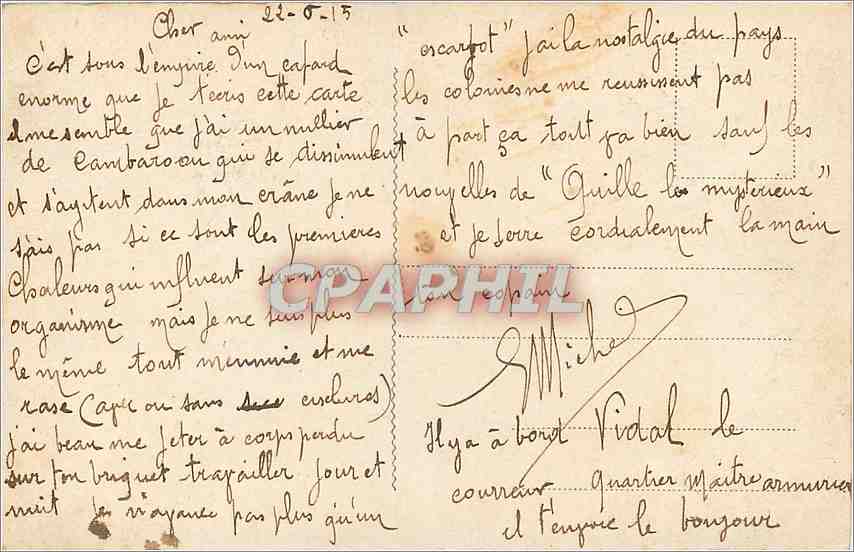 22-6-15
Cher ami
C'est sous l'empire d'un cafard
enorme que je t'ecris cette carte
il me semble que j'ai un millier
de Cambaroou qui se dissimulent
et s'agitent dans mon crâne je ne
sais pas si ce sont les premieres
Chaleurs qui influent sur mon
organisme mais je ne suis plus
le même tout m'ennuie et me
rase (avec ou sans ciselures)
j'ai beau me jeter à corps perdu
sur ton briquet travailler jour et
nuit je n'avance pas plus qu'un
"escargot" j'ai la nostalgie du pays
les colonies ne me reussissent pas
à part ça tout va bien sauf les
nouvelles de "Quille le mysterieux"
et je serre cordialement la main
ton copain
GMichel
Il y a à bord Vidal le
courreur quartier Maitre armurier
il t'envoie le bonjour
CPAPHIL